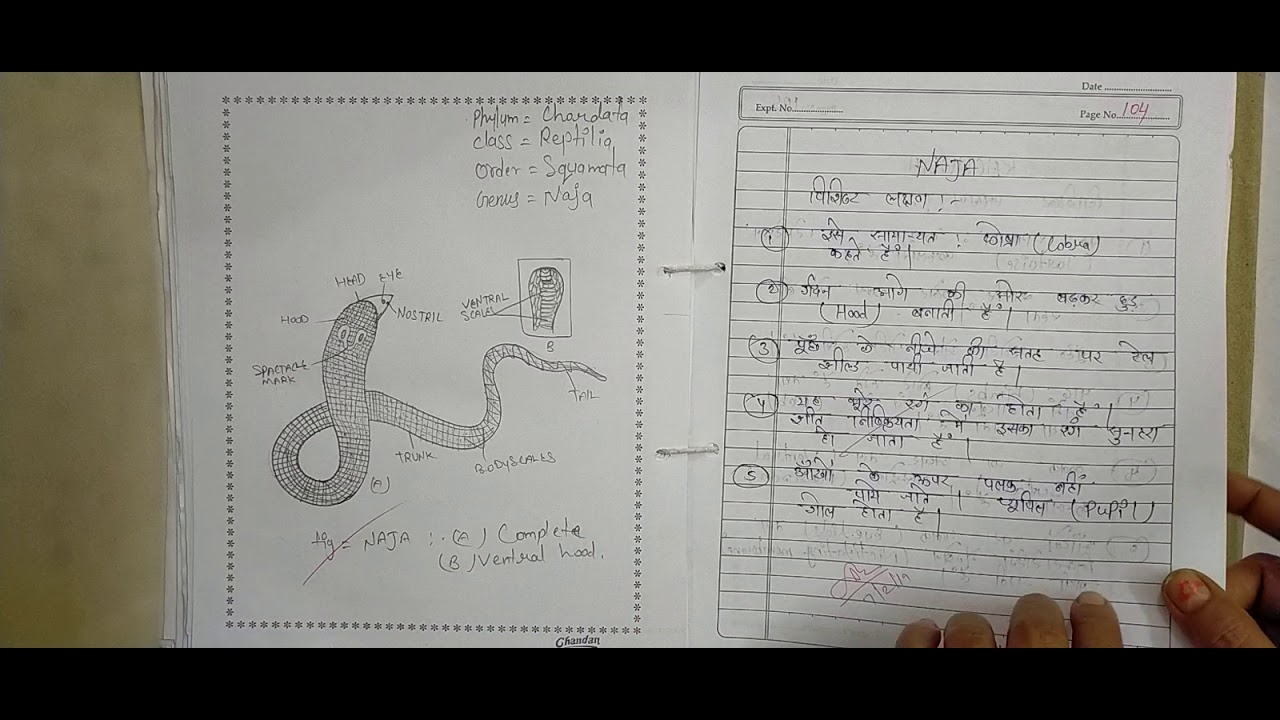 Phylum = Chordata
Class = Reptilia
Order = Squamata
Genus = Naja
HEAD
EYE
HOOD
NOSTRIL
SPACTACLE
MARK
VENTRAL
SCALES
B
TAIL
TRUNK
BODYSCALES
(A)
fig = NAJA :- (A) Complete
(B) Ventral hood.
Chandan
Date
Expt. No.
Page No. 104
NAJA
विशिष्ट लक्षण :-
1 इसे सामान्यत : कोब्रा (Cobra)
कहते हैं।
2 गर्दन आगे की ओर बढ़कर हुड
(Hood) बनाती है।
3 पूँछ के नीचे की सतह पर
शील्ड पायी जाती है।
4 यह भूरे रंग का होता है।
शीत निष्क्रियता में इसका रंग
हो जाता है।
5 आँखों के ऊपर पलक नहीं
पाये जाते। प्यूपिल (Pupil)
गोल होता है।